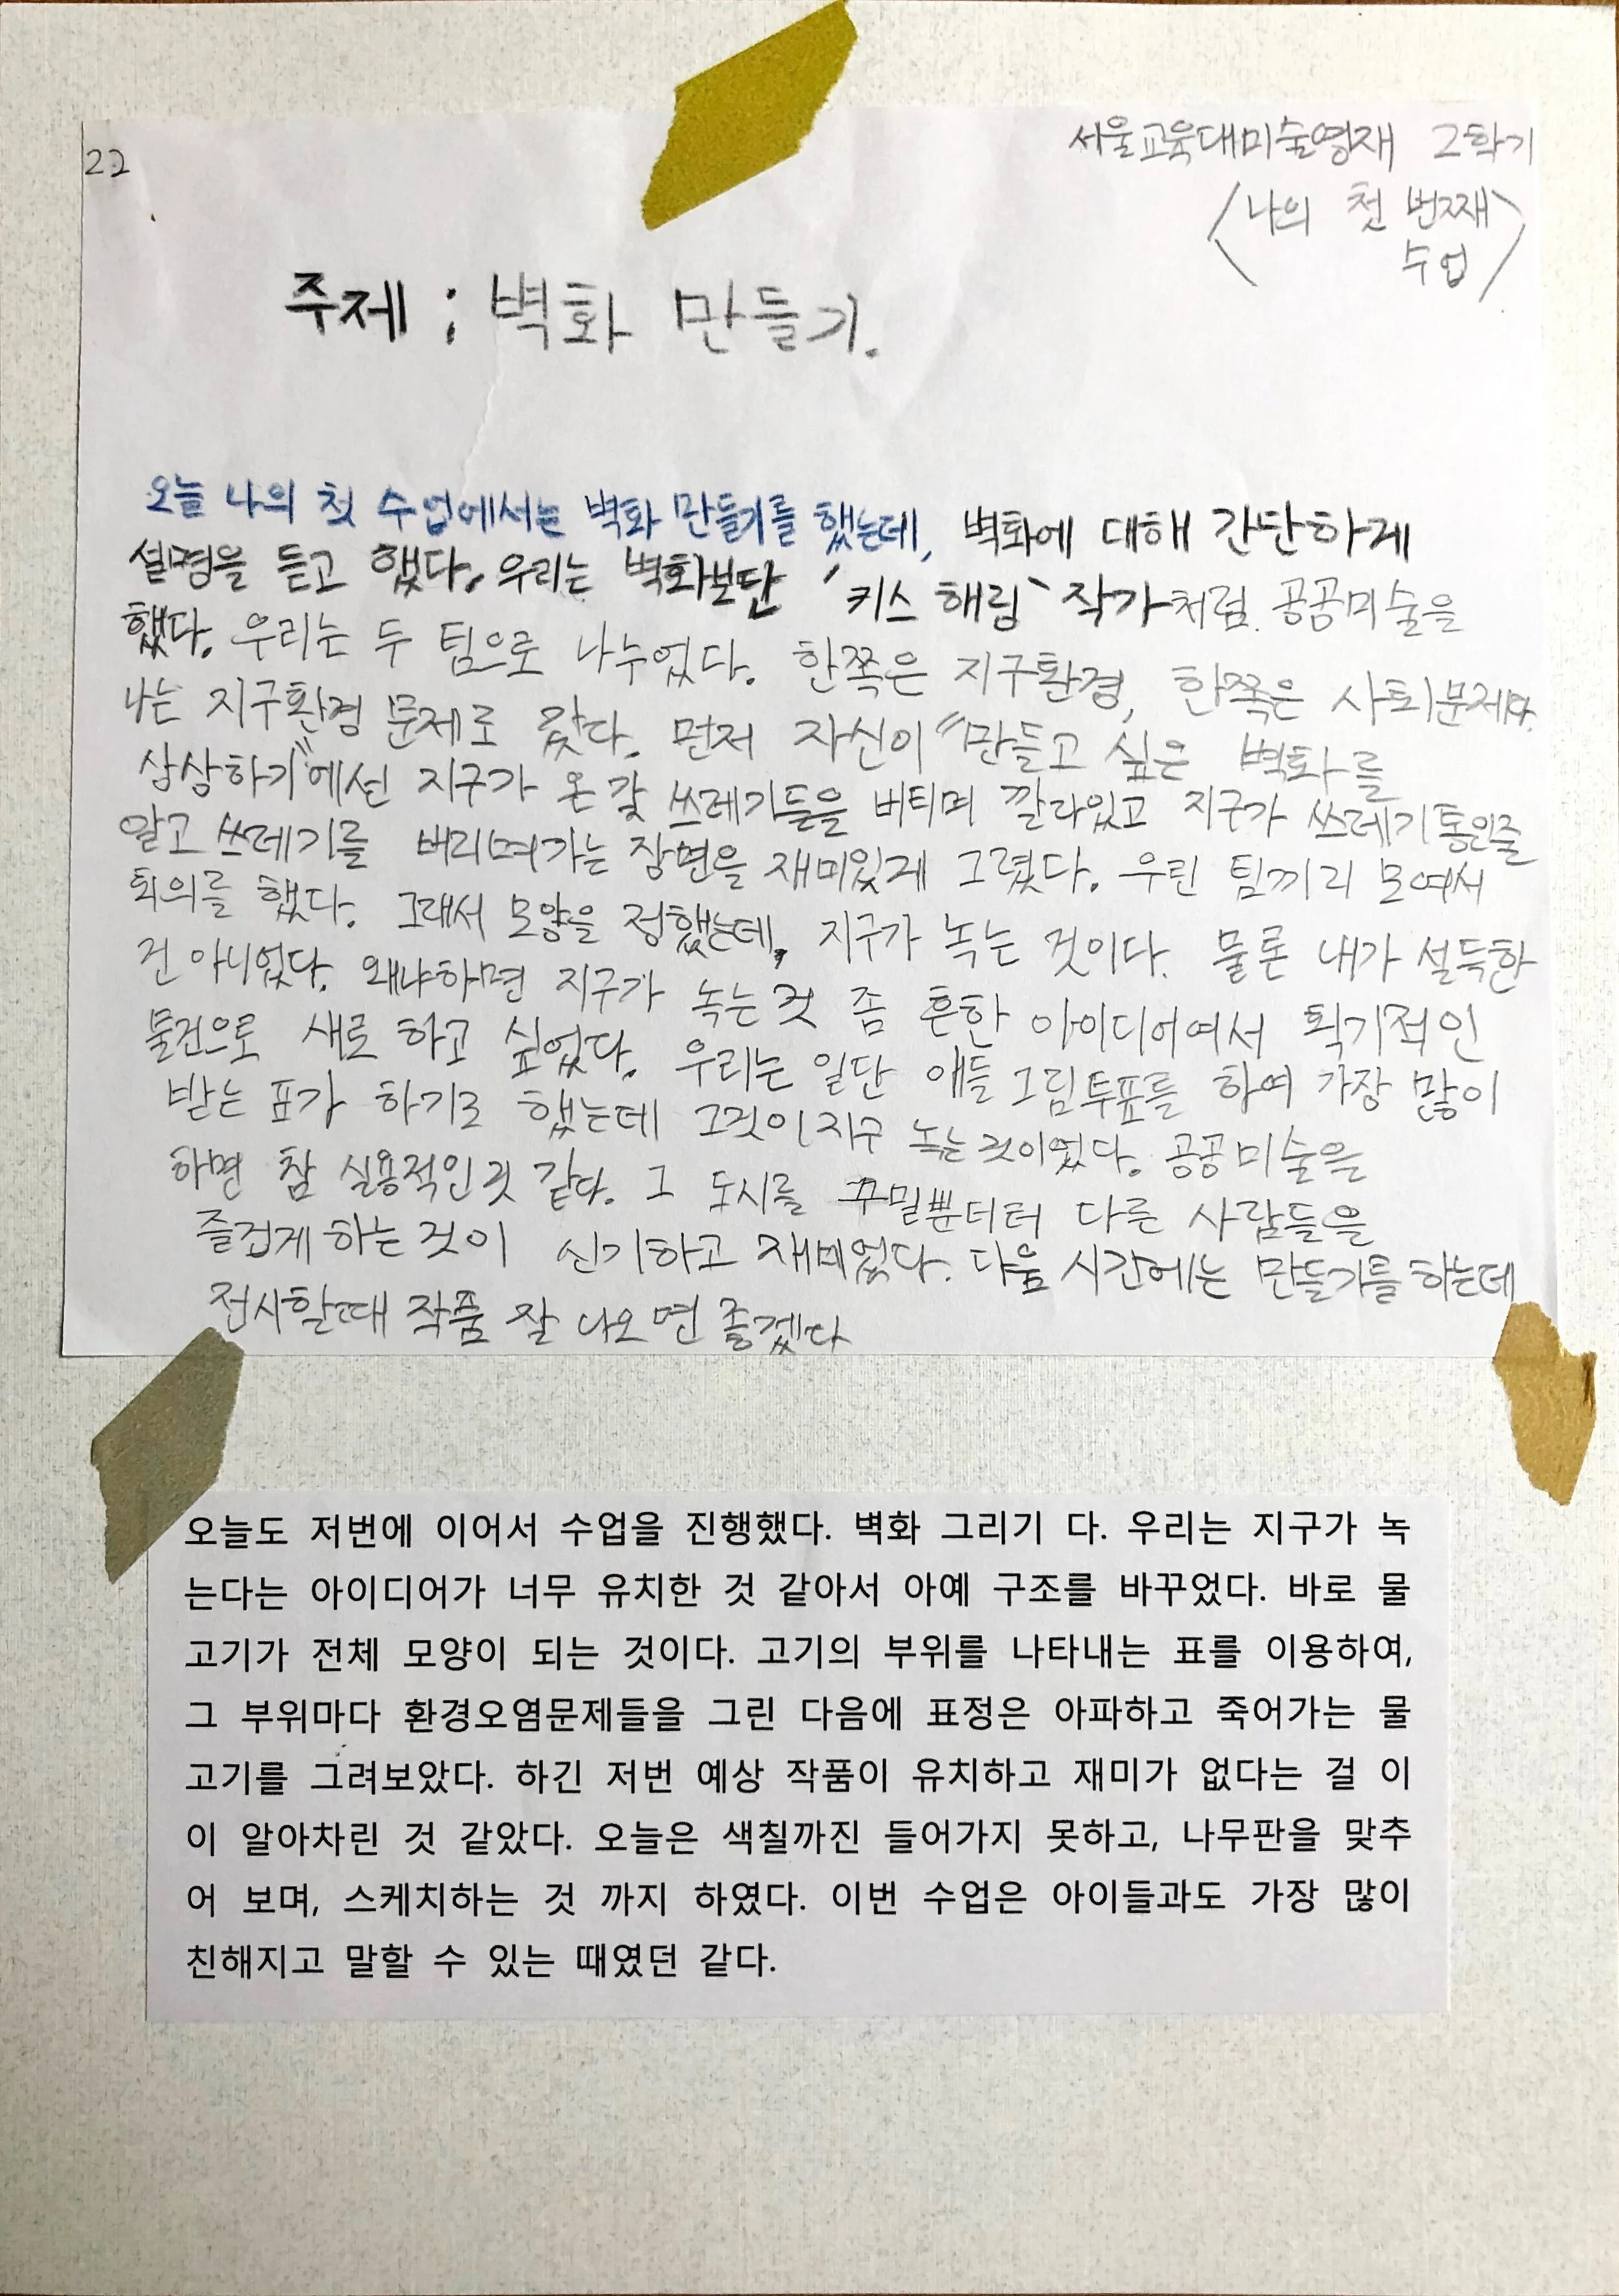 22
서울교육대미술영재 2학기
〈나의 첫 번째
수업〉
주제 ; 벽화 만들기.
오늘 나의 첫 수업에서는 벽화 만들기를 했는데, 벽화에 대해 간단하게
설명을 듣고 했다. 우리는 벽화보단 '키스 해링' 작가처럼 공공미술을
했다. 우리는 두 팀으로 나누었다. 한쪽은 지구환경, 한쪽은 사회문제다.
나는 지구환경 문제로 갔다. 먼저 자신이 "만들고 싶은 벽화를
상상하기"에선 지구가 온갖 쓰레기들을 버티며 깔라있고 지구가 쓰레기통인줄
알고 쓰레기를 버리며가는 장면을 재미있게 그렸다. 우린 팀끼리 모여서
회의를 했다. 그래서 모양을 정했는데, 지구가 녹는 것이다. 물론 내가 설득한
건 아니었다. 왜냐하면 지구가 녹는 것 좀 흔한 아이디어여서 획기적인
물건으로 새로 하고 싶었다. 우리는 일단 애들 그림투표를 하여 가장 많이
받는 표가 하기로 했는데 그것이 지구 녹는 것이었다. 공공미술을
하면 참 실용적인것 같다. 그 도시를 꾸밀뿐더터 다른 사람들을
즐겁게 하는 것이 신기하고 재미었다. 다음 시간에는 만들기를 하는데
전시할때 작품 잘 나오면 좋겠다
오늘도 저번에 이어서 수업을 진행했다. 벽화 그리기 다. 우리는 지구가 녹
는다는 아이디어가 너무 유치한 것 같아서 아예 구조를 바꾸었다. 바로 물
고기가 전체 모양이 되는 것이다. 고기의 부위를 나타내는 표를 이용하여,
그 부위마다 환경오염문제들을 그린 다음에 표정은 아파하고 죽어가는 물
고기를 그려보았다. 하긴 저번 예상 작품이 유치하고 재미가 없다는 걸 이
이 알아차린 것 같았다. 오늘은 색칠까진 들어가지 못하고, 나무판을 맞추
어 보며, 스케치하는 것 까지 하였다. 이번 수업은 아이들과도 가장 많이
친해지고 말할 수 있는 때였던 같다.